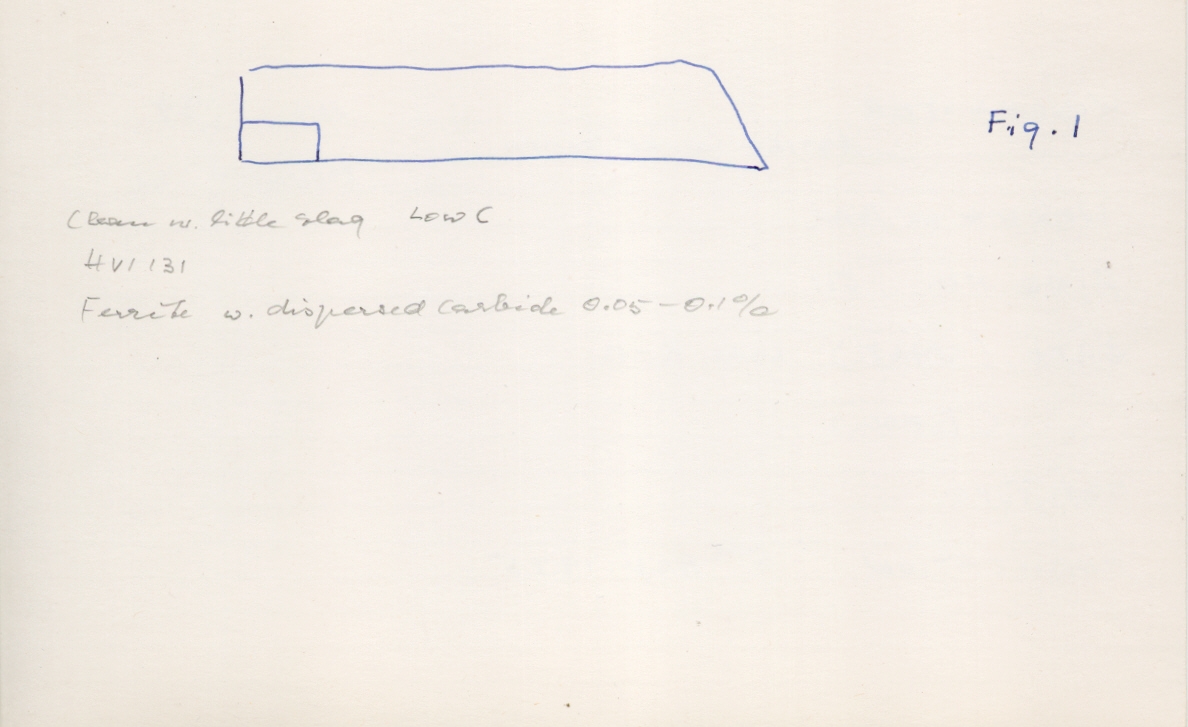 Fig. 1
Clean w. little slag Low C
HV1 131
Ferrite w. dispersed carbide 0.05 - 0.1%